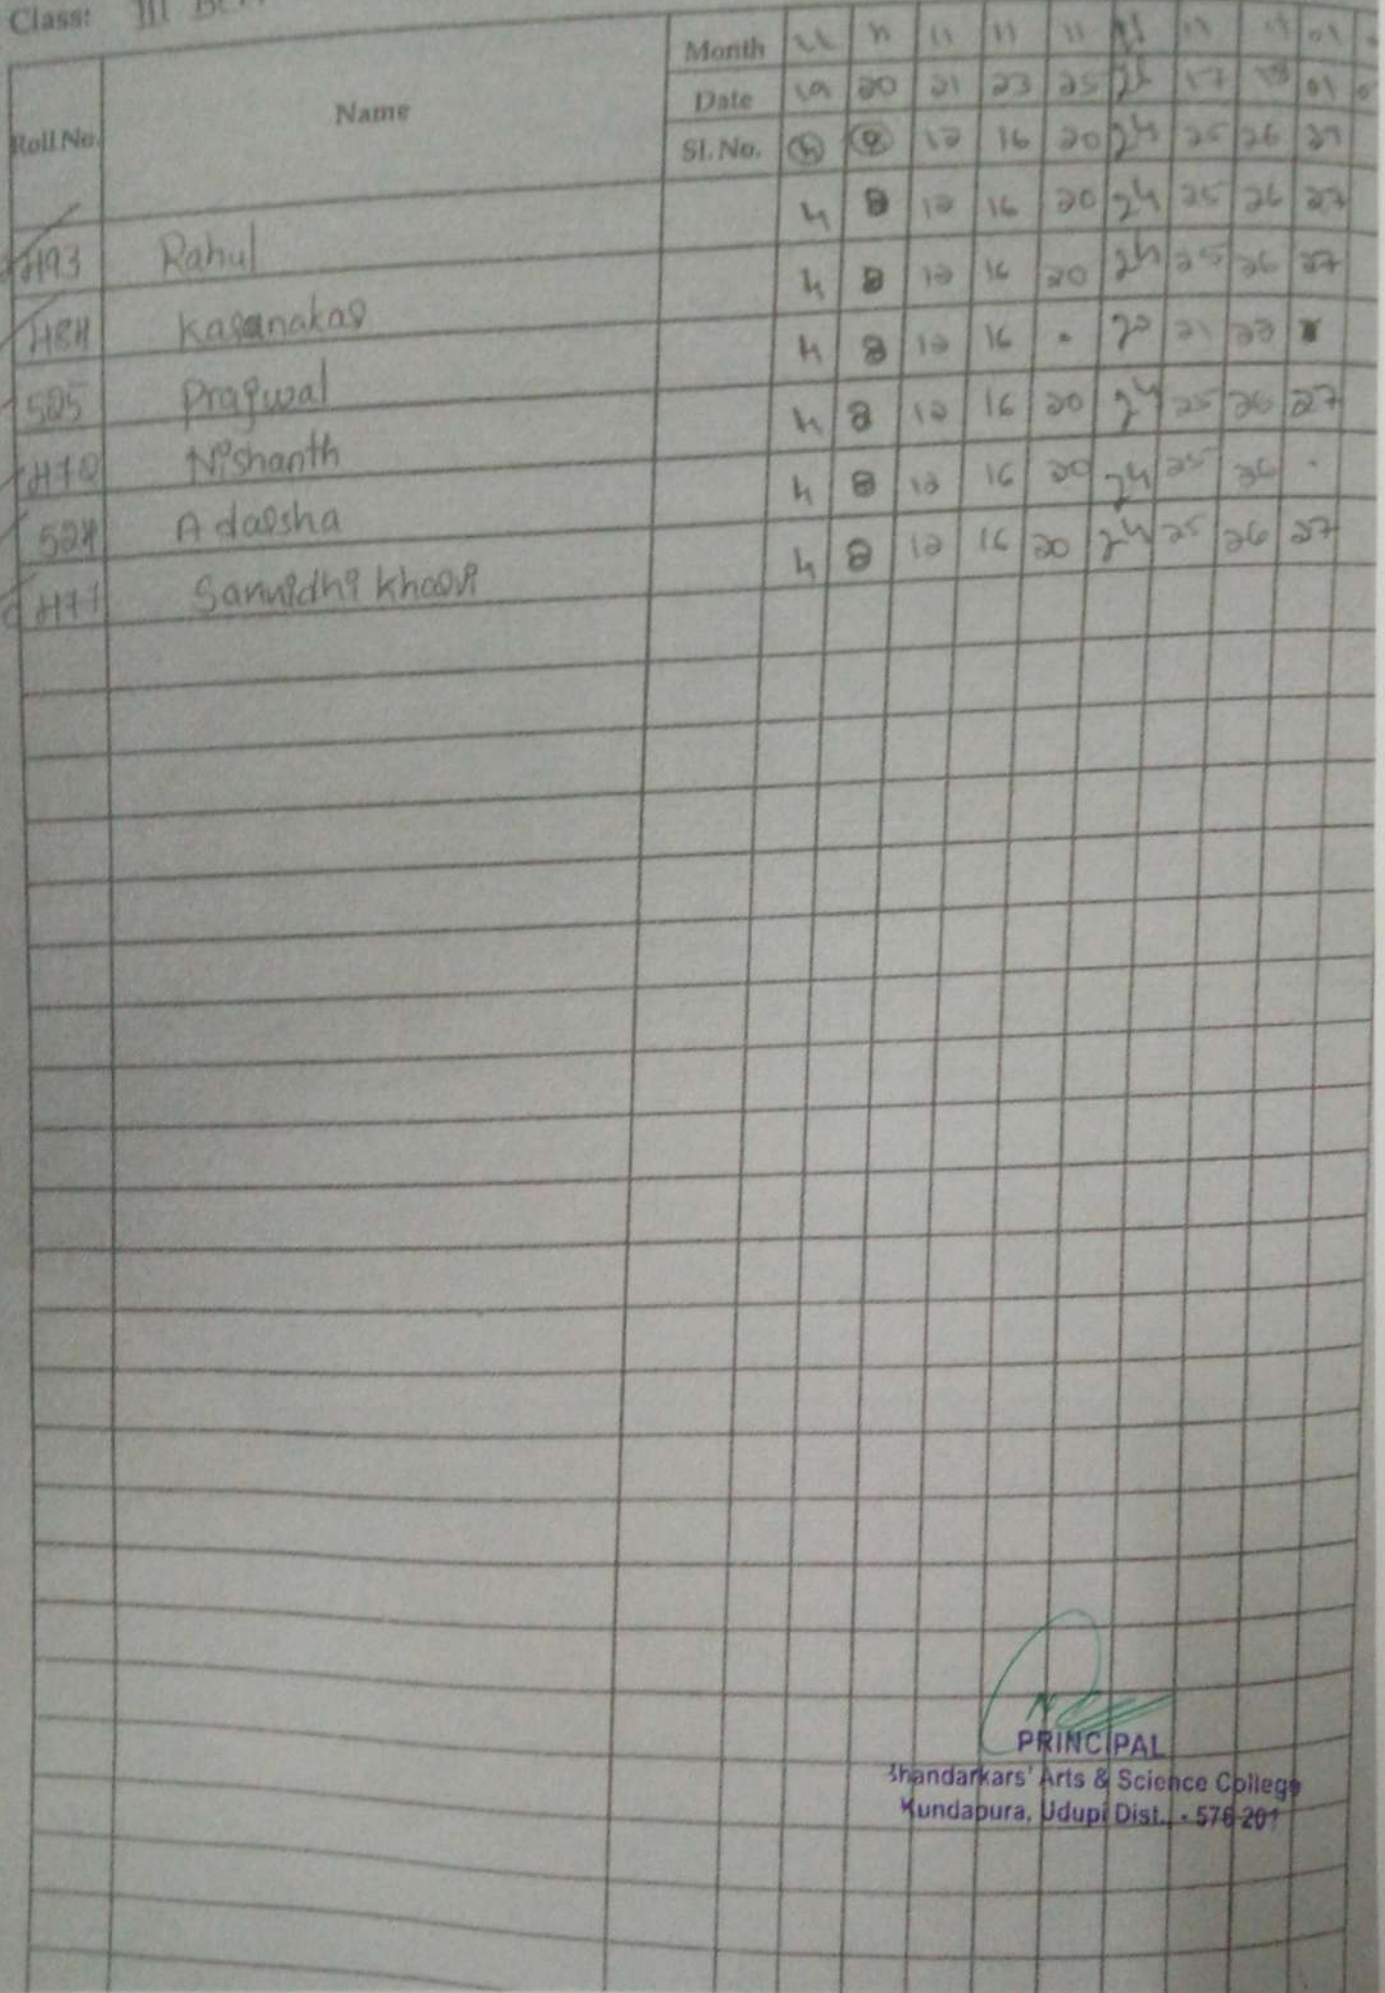 Class: III
Month 11 11 11 11 11 11 11 11 01
Date 19 20 21 23 25 26 27 01
Roll No. Name Sl. No. 4 8 12 16 20 24 25 26 27
493 Rahul 4 8 12 16 20 24 25 26 27
484 4 8 12 16 20 24 25 26 27
525 Prajwal 4 8 12 16 . 20 21 22
Nishanth 4 8 12 16 20 24 25 26 27
524 Adarsha 4 8 12 16 20 24 25 26 .
471 Sannidhi Kharvi 4 8 12 16 20 24 25 26 27
PRINCIPAL
Bhandarkars' Arts & Science College
Kundapura, Udupi Dist. - 576 201